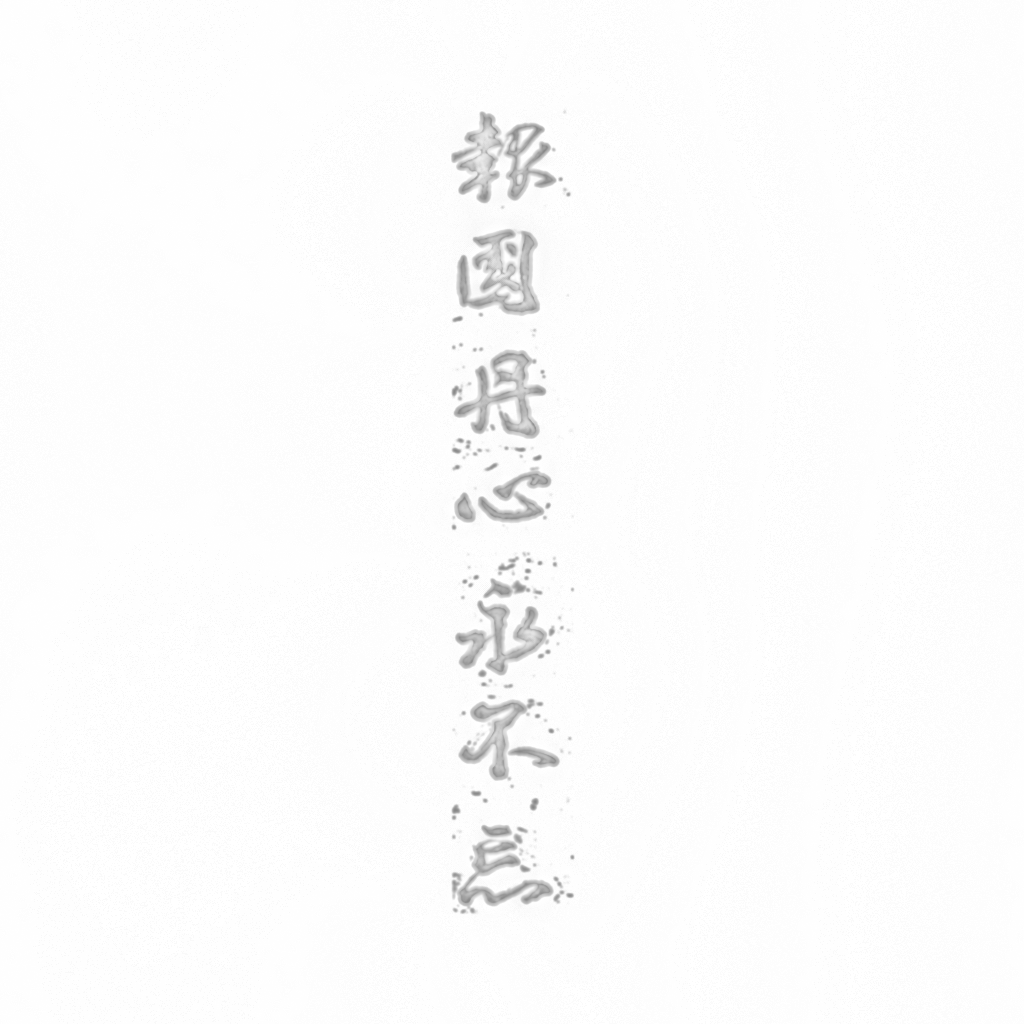 報國丹心永不忘